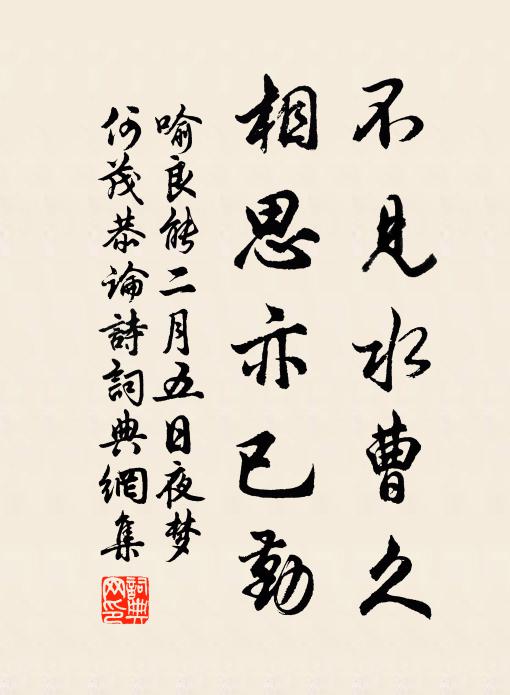 不見水曹久
相思亦已勤
喻良能二月五日夜梦
何茂恭論詩詞典網集
詞典
网印